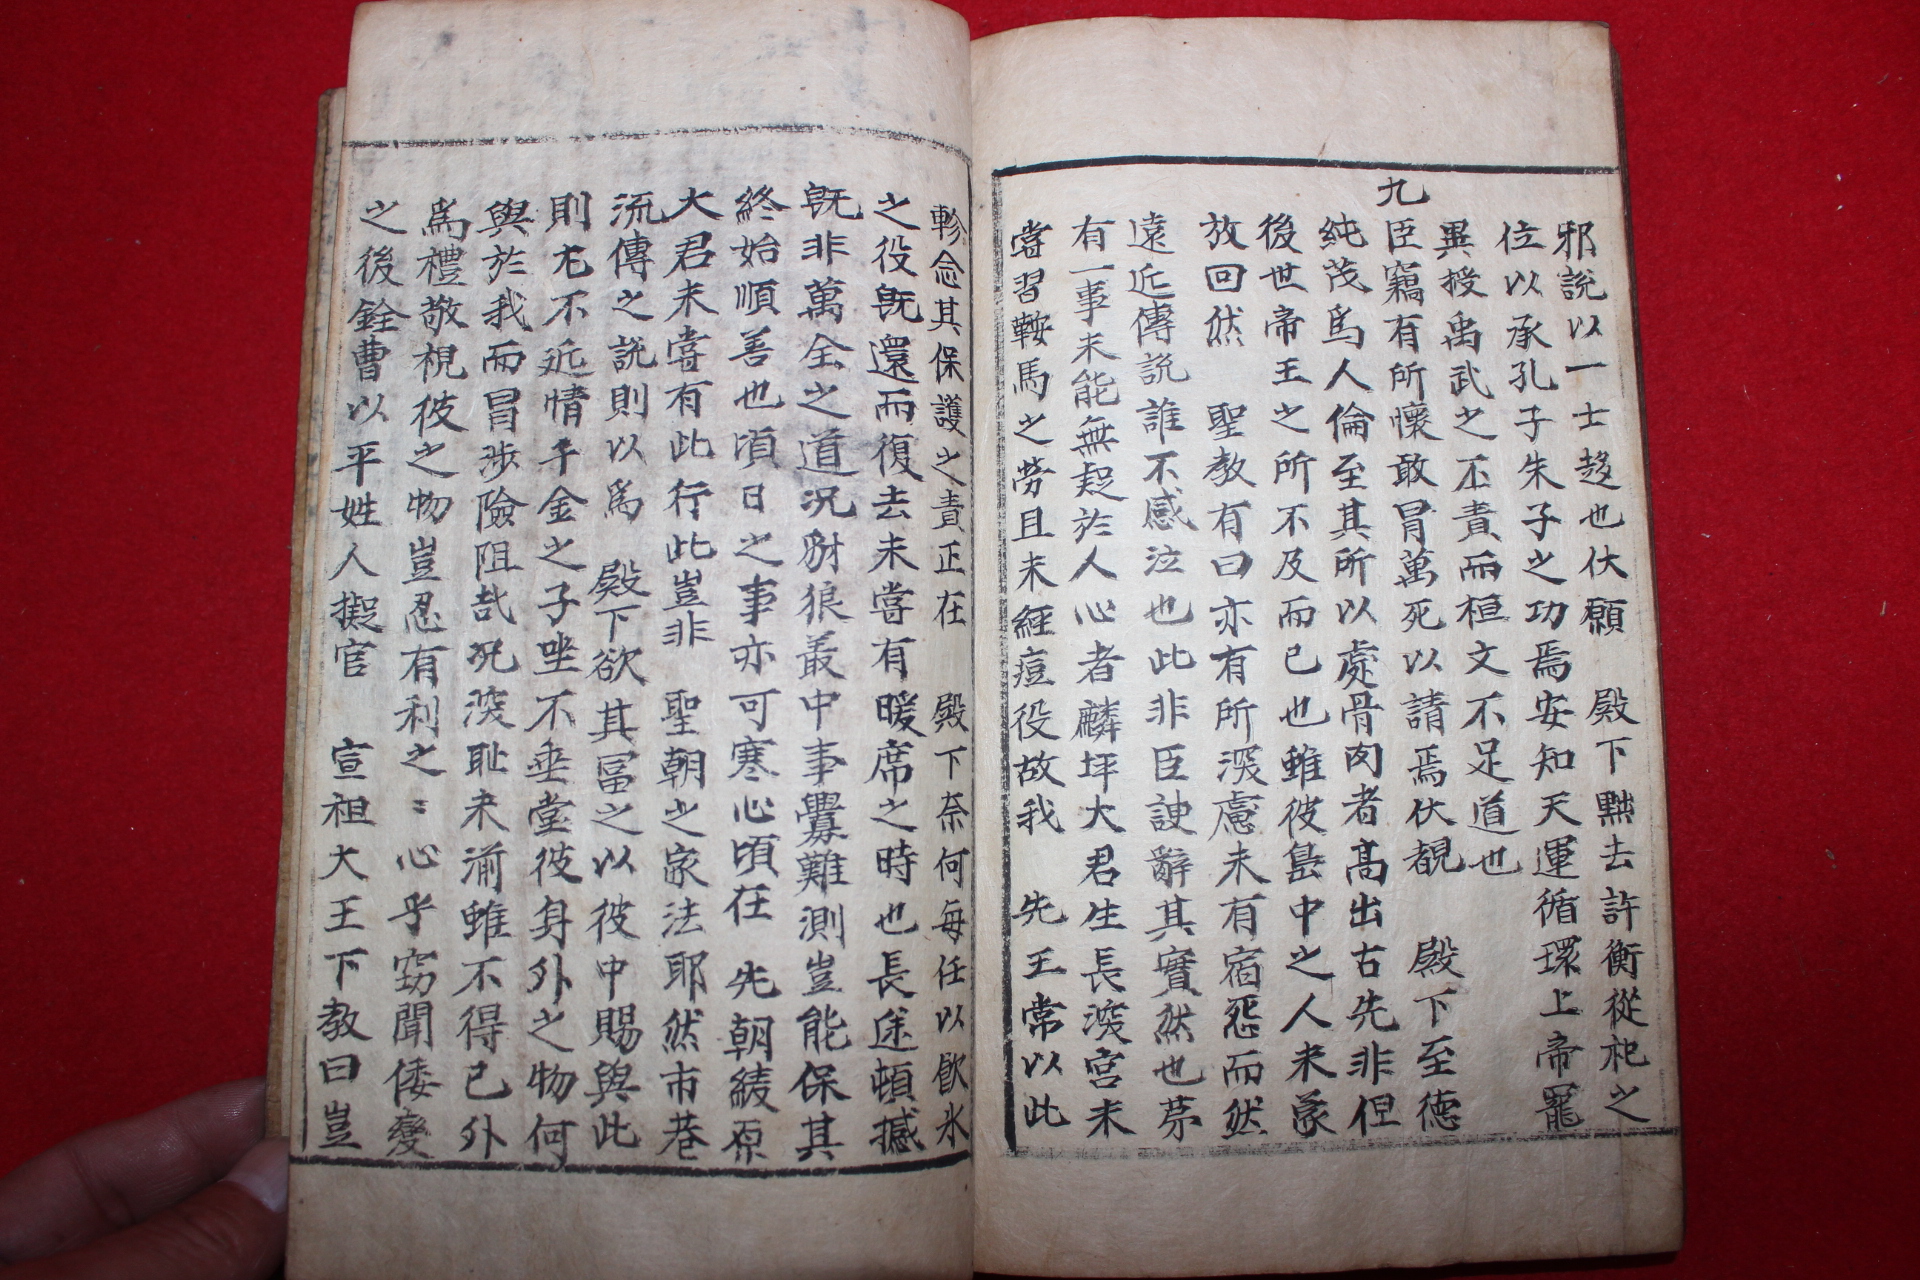 邪說以一士趍也伏願 殿下黜去許衡從祀之
位以承孔子朱子之功焉安知天運循環上帝寵
異授禹武之丕責而桓文不足道也
九
臣竊有所懷敢冒萬死以請焉伏覩 殿下至德
純茂爲人倫至其所以處骨肉者高出古先非但
後世帝王之所不及而已也雖彼島中之人未蒙
放回然 聖敎有曰亦有所深慮未有宿怨而然
遠近傳說誰不感泣也此非臣諛辭其實然也苐
有一事未能無疑於人心者麟坪大君生長深宮未
嘗習鞍馬之勞且未經痘役故我 先王常以此
軫念其保護之責正在 殿下奈何每任以飮氷
之役旣還而復去未嘗有暖席之時也長途頓撼
旣非萬全之道況豺狼叢中事釁難測豈能保其
終始順善也頃日之事亦可寒心頃在 先朝綾原
大君未嘗有此行此豈非 聖朝之家法耶然市巷
流傳之說則以爲 殿下欲其富之以彼中賜與此
則尤不近情千金之子坐不垂堂彼身外之物何
與於我而冒涉險阻哉況深恥未湔雖不得已外
爲禮敬視彼之物豈忍有利之〻心乎窃聞倭變
之後銓曹以平姓人擬官 宣祖大王下敎曰豈